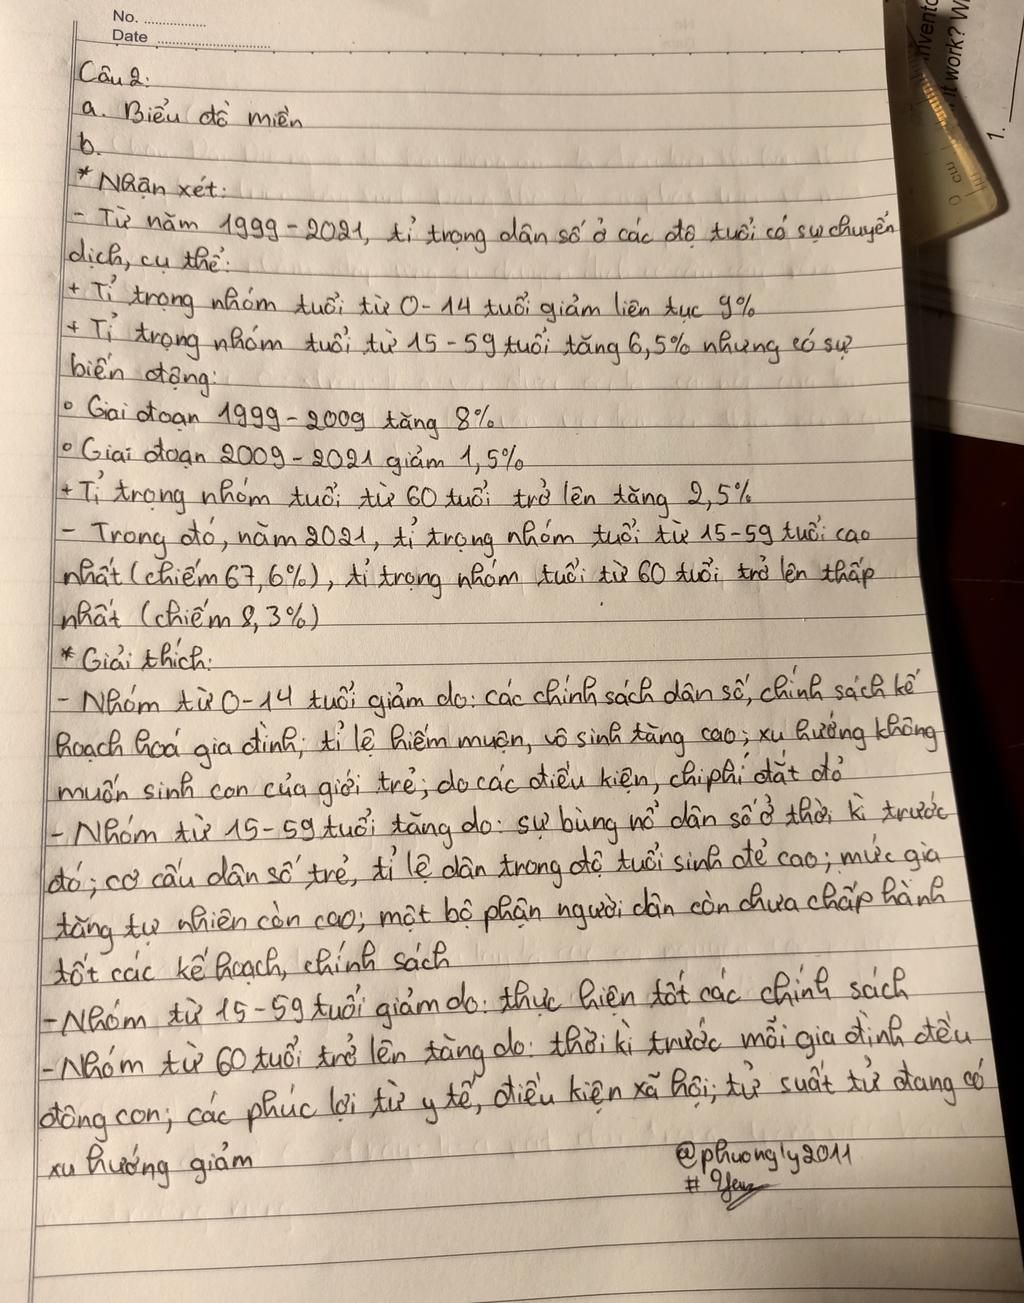 No. ................
Date ..............................
Câu 2:
a. Biểu đồ miền
b.
* Nhận xét:
- Từ năm 1999-2021, tỉ trọng dân số ở các độ tuổi có sự chuyển
dịch, cụ thể:
+ Tỉ trọng nhóm tuổi từ 0-14 tuổi giảm liên tục 9%
+ Tỉ trọng nhóm tuổi từ 15-59 tuổi tăng 6,5% nhưng có sự
biến động:
o Giai đoạn 1999-2009 tăng 8%
o Giai đoạn 2009-2021 giảm 1,5%
+ Tỉ trọng nhóm tuổi từ 60 tuổi trở lên tăng 2,5%
- Trong đó, năm 2021, tỉ trọng nhóm tuổi từ 15-59 tuổi cao
nhất (chiếm 67,6%), tỉ trọng nhóm tuổi từ 60 tuổi trở lên thấp
nhất (chiếm 8,3%)
* Giải thích:
- Nhóm từ 0-14 tuổi giảm do: các chính sách dân số, chính sách kế
hoạch hoá gia đình; tỉ lệ hiếm muộn, vô sinh tăng cao; xu hướng không
muốn sinh con của giới trẻ; do các điều kiện, chi phí đắt đỏ
- Nhóm từ 15-59 tuổi tăng do: sự bùng nổ dân số ở thời kì trước
đó; cơ cấu dân số trẻ, tỉ lệ dân trong độ tuổi sinh đẻ cao; mức gia
tăng tự nhiên còn cao; một bộ phận người dân còn chưa chấp hành
tốt các kế hoạch, chính sách
- Nhóm từ 15-59 tuổi giảm do: thực hiện tốt các chính sách
- Nhóm từ 60 tuổi trở lên tăng do: thời kì trước mỗi gia đình đều
đông con; các phúc lợi từ y tế, điều kiện xã hội; tử suất tử đang có
xu hướng giảm
@phuongly2011
invento
it work? W
1.
cm
0